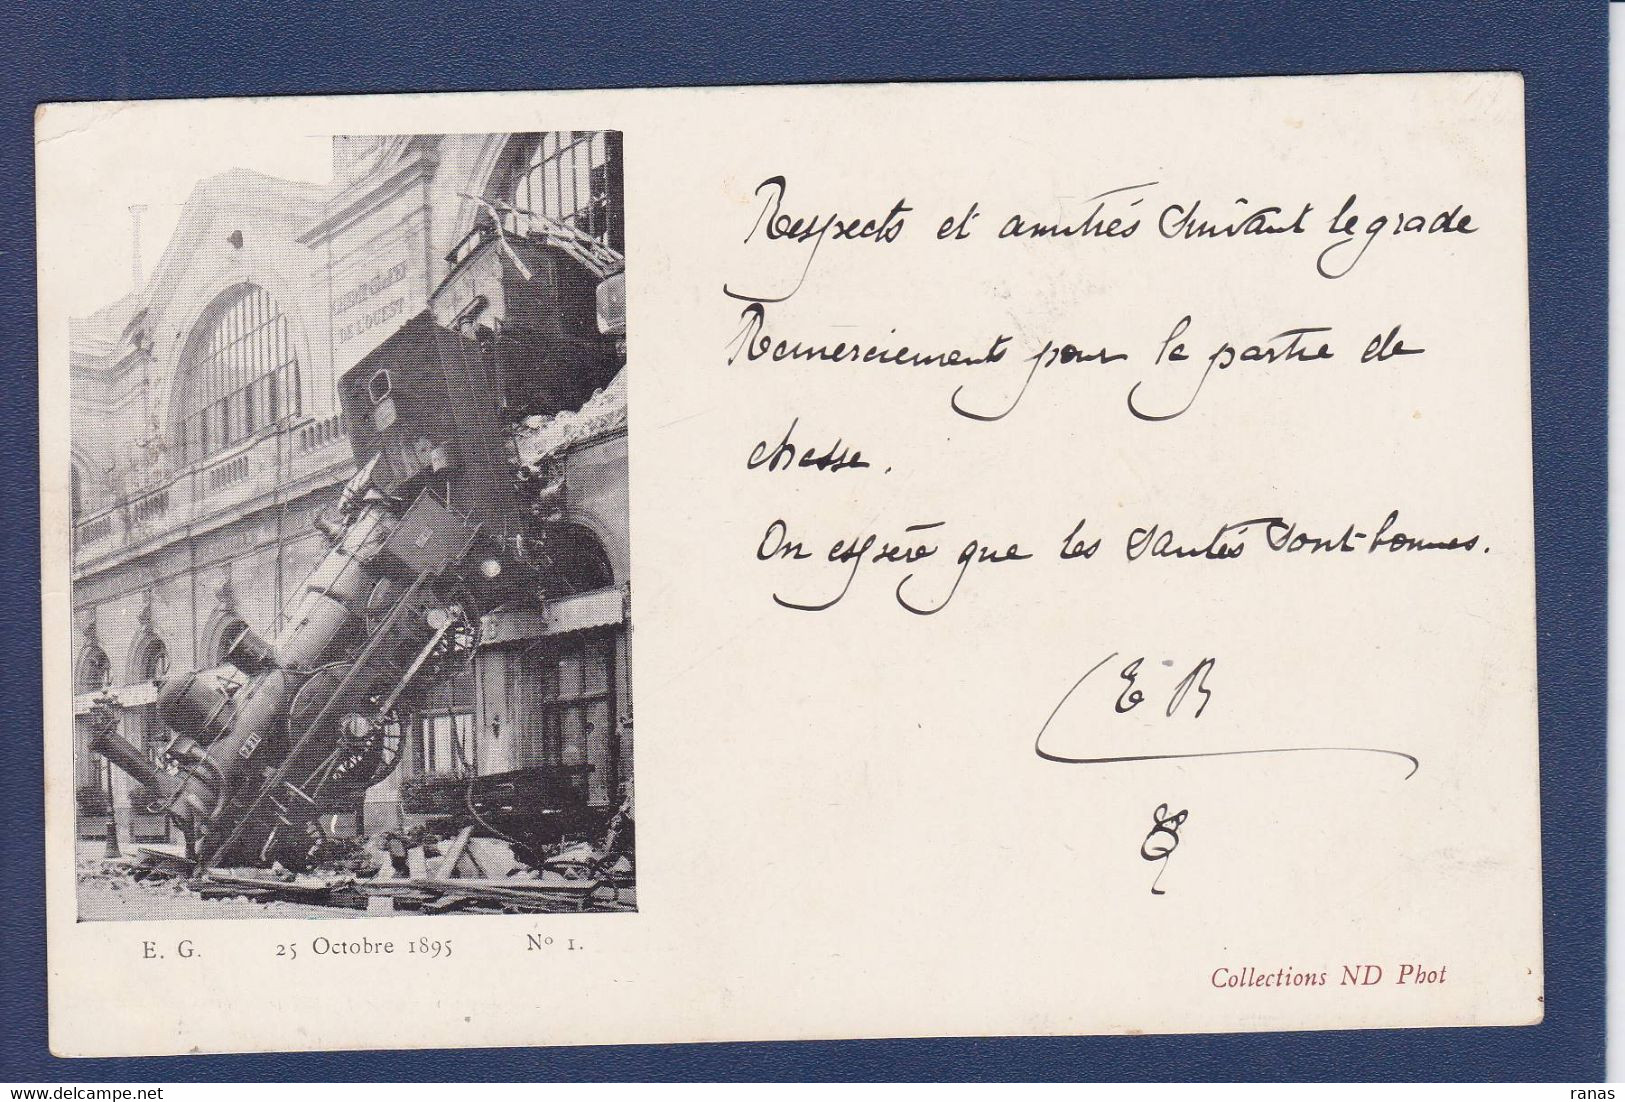 CHEMIN DE FER
DE L'OUEST
Respects et amitiés suivant le grade
Remerciements pour la partie de
chasse.
On espère que les santés sont bonnes.
E B
E. G. 25 Octobre 1895 No 1.
Collections ND Phot
ranas